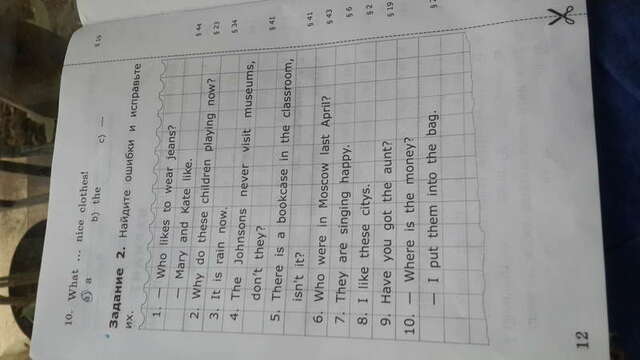 10. What ... nice clothes!
a) a b) the c) —
§ 16
Задание 2. Найдите ошибки и исправьте
их.
1. — Who likes to wear jeans?
— Mary and Kate like.
§ 44
2. Why do these children playing now?
§ 23
3. It is rain now.
§ 34
4. The Johnsons never visit museums,
don't they?
§ 41
5. There is a bookcase in the classroom,
isn't it?
§ 41
6. Who were in Moscow last April?
§ 43
7. They are singing happy.
§ 6
8. I like these citys.
§ 2
9. Have you got the aunt?
§ 19
10. — Where is the money?
— I put them into the bag.
§
12